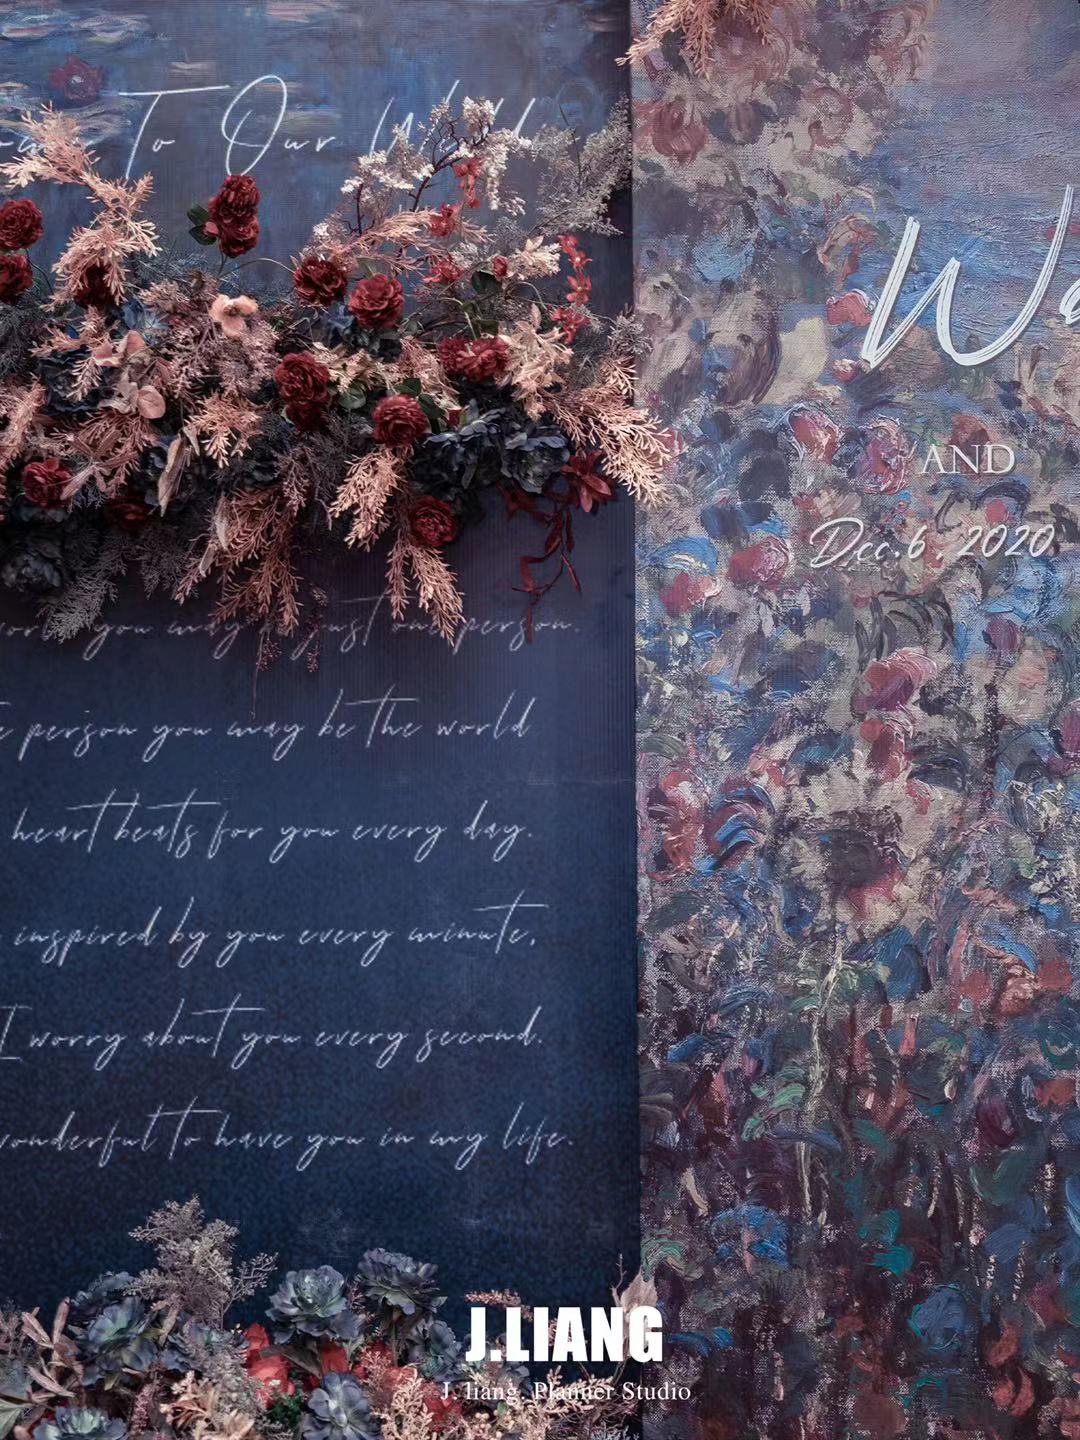 To Our
you may just one person.
person you may be the world
heart beats for you every day.
inspired by you every minute,
I worry about you every second.
wonderful to have you in my life.
W
AND
Dec.6, 2020
J.LIANG
J. liang. Planner Studio